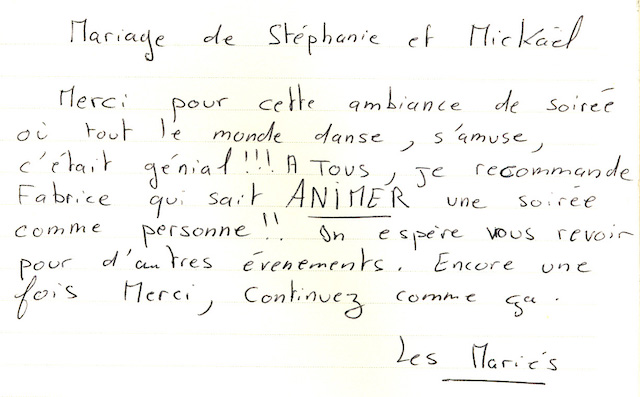 Mariage de Stéphanie et Mickaël
Merci pour cette ambiance de soirée
où tout le monde danse, s'amuse,
c'était génial!!! A TOUS, je recommande
Fabrice qui sait ANIMER une soirée
comme personne!! On espère vous revoir
pour d'autres évenements. Encore une
fois Merci, Continuez comme ça.
Les Mariés